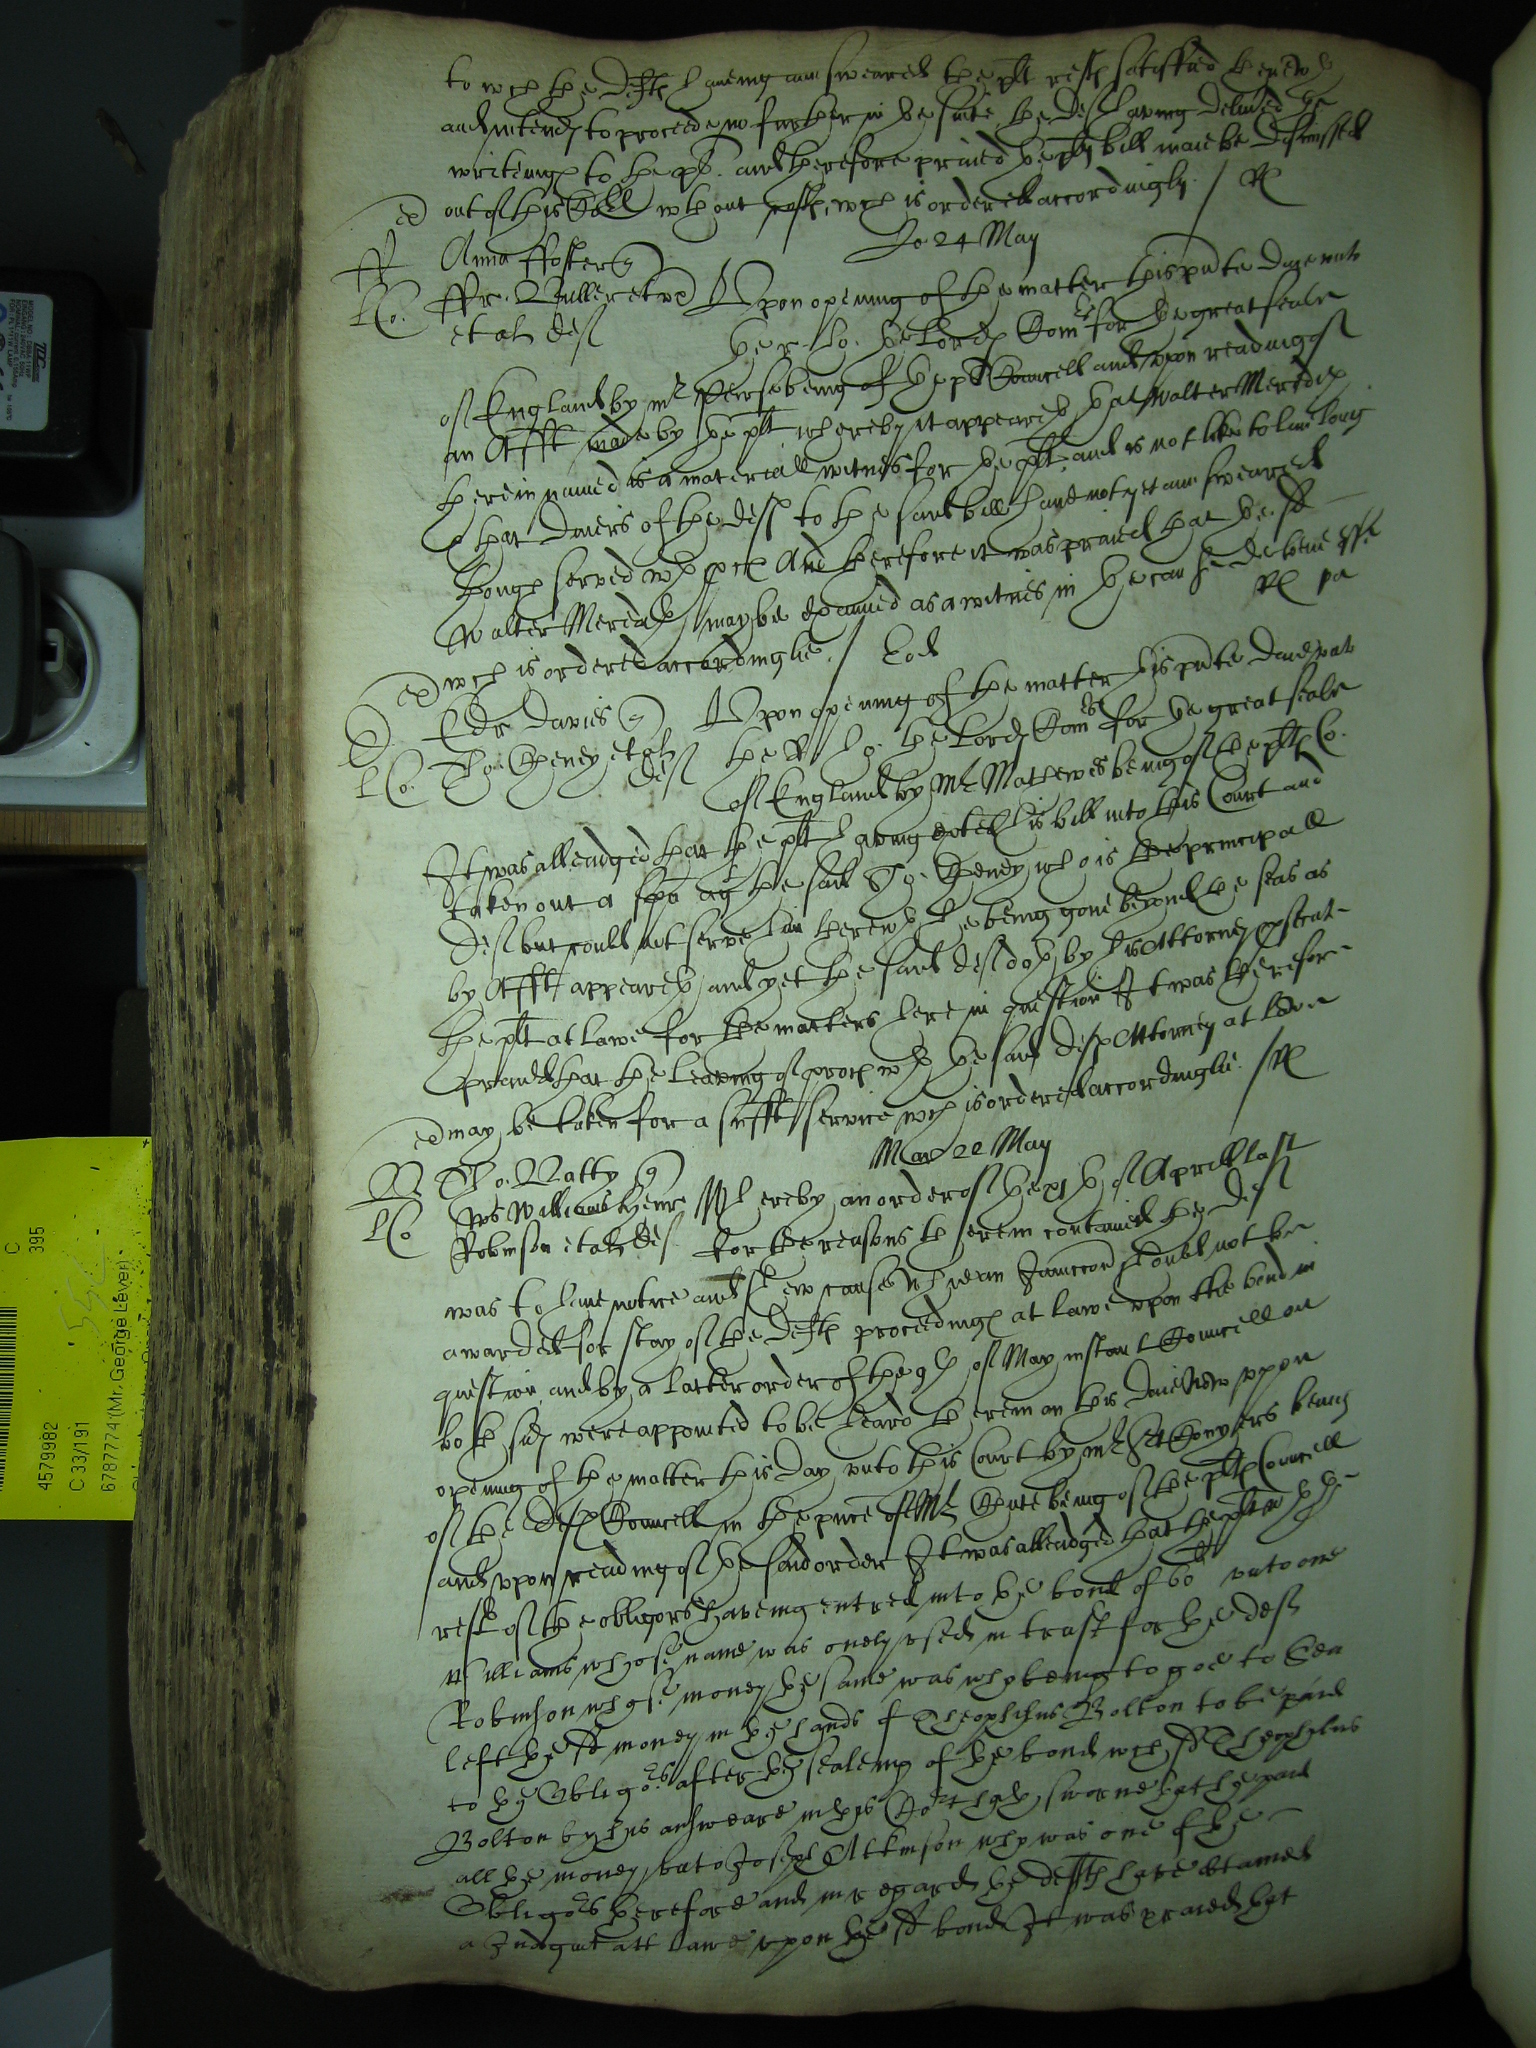 to wch the Defts haveing answeared the plt resteth satisfied therewth
and intends to proceede no further in the suite the Deft having delived the
writeings to the plt. and therefore praied the plts bill maie be dismissed
out of this Co: wthout costs, wch is ordered accordingly. / Rx
Jo 24 May
Anna ffoster q
ffr. Buller et ux
et al deft
Upon opening of the matter this pnte daie unto
the r. ho. the Lords Comrs for the great seale
of England by mr being of the plts Councell and upon reading of
an Afft made by the plt whereby it appeareth that Walter Meredith
therein named is a materiall witnes for the plt, and is not like to live long
that divers of the defts to the said bill have not yet answeared
though served wth proces And therefore it was praied that the sd
Walter Meredith may be examined as a witnes in the cause de bene esse
wch is ordered accordinglie. / Rx pa
Eod
Edr Davies q
Tho. Cheney et al deft
Upon opening of the matter this pnte daie unto
the R. ho. the Lords Comrs for the great seale
of England by Mr Mathewes being of the plts Co.
It was alleadged that the plt having exhited his bill into this Court and
taken out a spa agt the said Tho. Cheney who is the principall
deft but could not serve him therewth he being gone beyond the seas as
by Afft appeareth, and yet the said deft doth by his Attorney prosecute
the plt at lawe for the matters here in question It was therefore
praied that the leaving of proces wth the said defts Attorney at Lawe
may be taken for a sufft service wch is ordered accordinglie. / Rx
Mar 22 May
Tho. Batty q
Ws Williams Henr
Robinson et al def
Whereby an order of the xth of Aprill last
for the reasons therein contained the Deft
was to have notice and shew cause wherein Iniunccon should not be
awarded for stay of the Defts proceedings at lawe upon the bond in
question and by a latter order of the 9th of May instant Councell on
both sids were appointed to be heard therein on this daie Now upon
opening of the matter this day unto this Court by mr Srt Conyers being
of the defts Councell in the pnce of Mr Chute being of the plts Councell
and upon reading of the said order It was alleadged that the plt wth the
rest of the obligors haveing entred into the bond of unto one
Williams whose name was onely used in trust for the deft
Robinson whose money the same was who being to goe to Sea
left the sd money in the hands of Theophilus Bolton to be paid
to the Obligors after the sealeing of the bond wch sd Theophilus
Bolton by his answeare in this Cort hath sworne that he paid
all the money unto Joseph Atkinson who was one of the
Obligors therefore and in regard the defts have obtained
a Judgmt att Lawe upon the sd bond It was praied that
4579982
C 33/191
6787774 (Mr. George Lever)
C
395